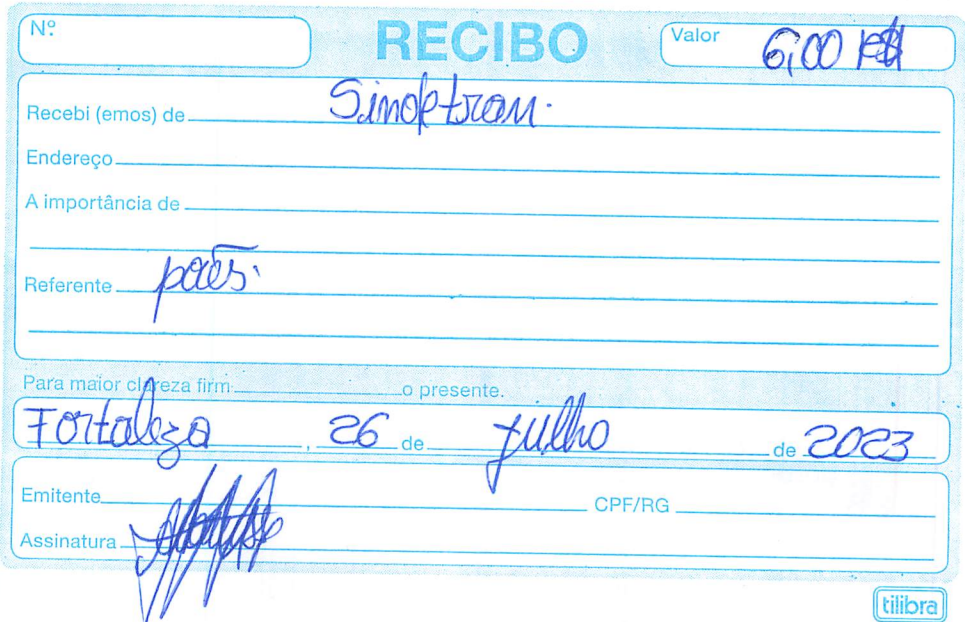 Nº RECIBO Valor 6,00 R$
Recebi (emos) de Sindetran.
Endereço
A importância de
Referente pães.
Para maior clareza firm o presente.
Fortaleza, 26 de julho de 2023
Emitente CPF/RG
Assinatura
tilibra